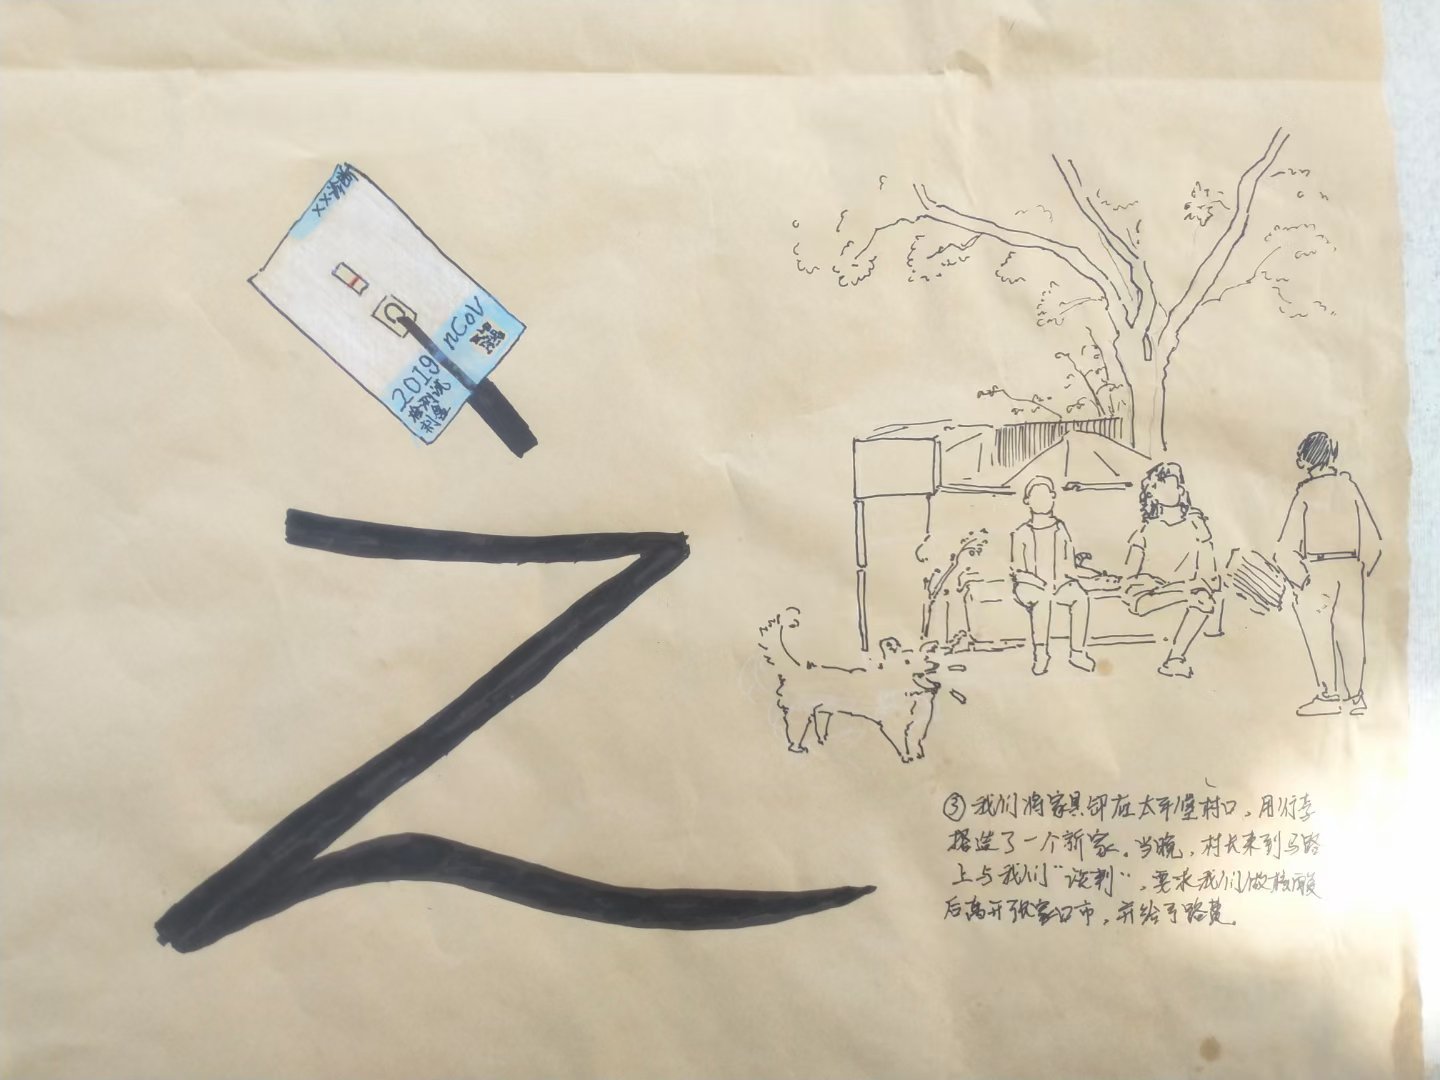 xx诊断
2019 nCoV
检测试
剂盒
之
③我们将家具卸在太平堡村口，用行李
搭造了一个新家。当晚，村长来到马路
上与我们“谈判”，要求我们做核酸
后离开张家口市，并给予路费。